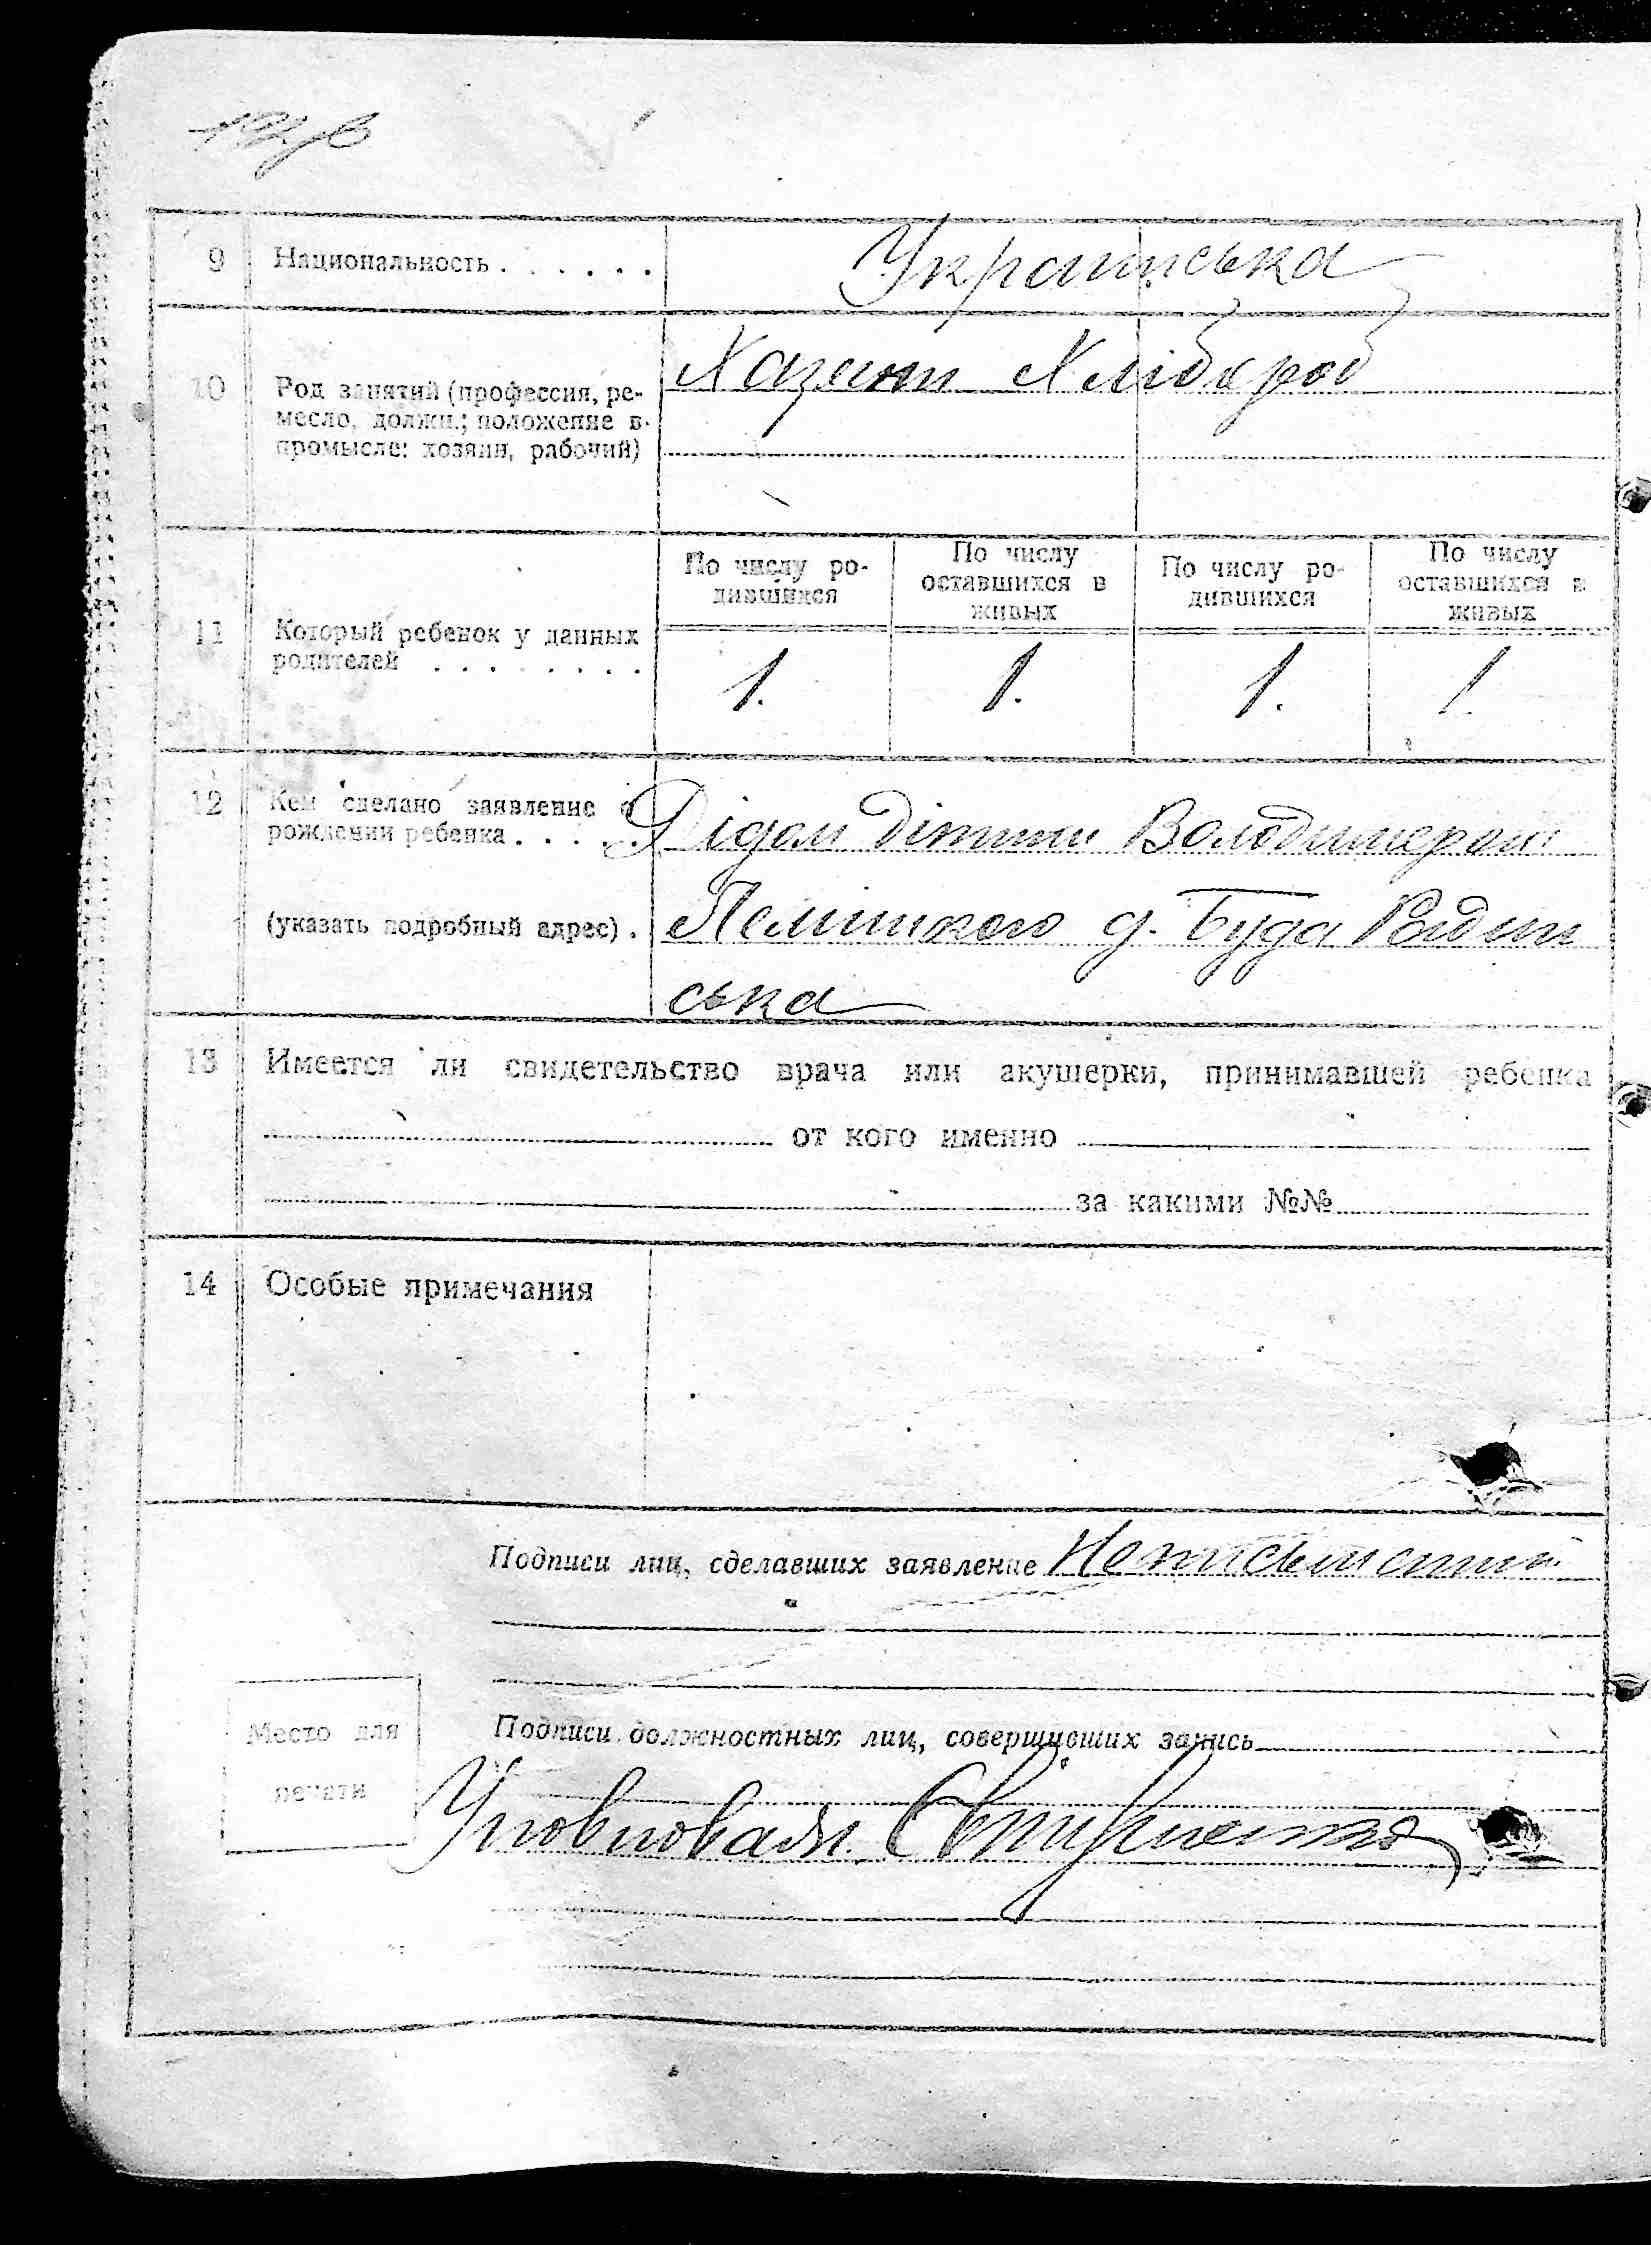 9 Национальность . . . . . . Українська
10 Род занятий (профессия, ре-
месло, должн.; положение в
промысле: хозяин, рабочий)
Хазяин Хлібороб
По числу ро-
дившихся
По числу
оставшихся в
живых
По числу ро-
дившихся
По числу
оставшихся в
живых
11 Который ребенок у данных
родителей . . . . . . . .
1. 1. 1. 1.
12 Кем сделано заявление о
рождении ребенка . . . .
Дідом дітини Володимером
(указать подробный адрес) . д. Буда
ська
13 Имеется ли свидетельство врача или акушерки, принимавшей ребенка
от кого именно
за какими №№
14 Особые примечания
Подписи лиц, сделавших заявление
Место для
печати
Подписи должностных лиц, совершивших запись